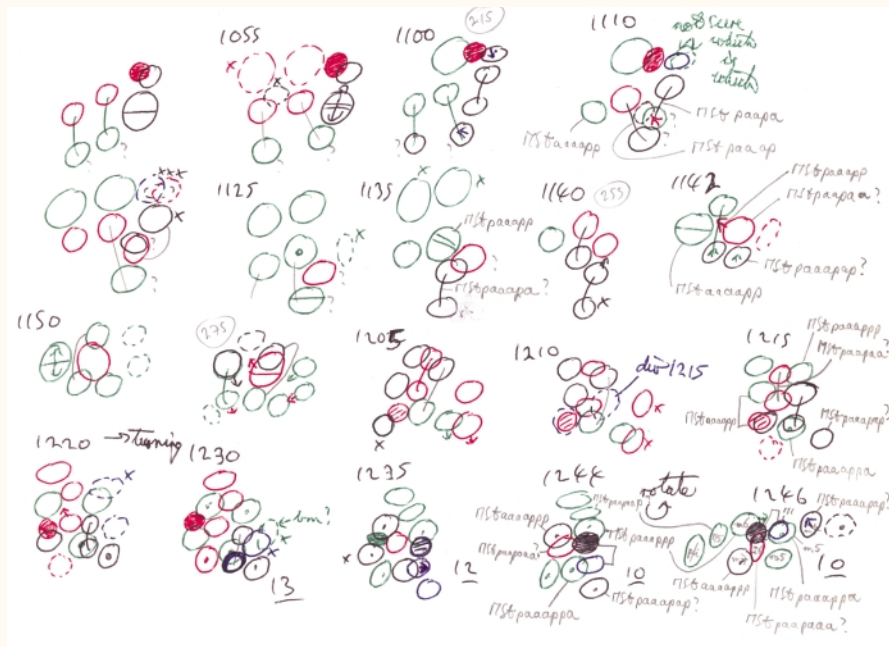 1055
1100
215
1110
not sure
which
is
which
MSt paapa
MSt aaaapp
MSt paaap
?
?
?
?
?
?
x
x
xxx
x
1125
x
1135
x
x
MSt paaapp
MSt paaapa?
1140
255
x
1142
MSt paaapp
MSt paapaa?
MSt paaapap?
MSt aaaapp
1150
275
1205
x
1210
div 1215
x
x
1215
MSt paaappp
MSt paapaa?
MSt aaaapp
MSt paaapap?
MSt paaappa
1220 → turning
x
1230
bm?
x
x
13
1235
x
12
1244
MSt aaaappp
MSt paaappp
MSt paapaaa?
10
MSt paaappa
MSt paaapap?
rotate
1246
MSt paaapap?
m5
MSt aaaappp
10
MSt paaappa
MSt paapaaa?